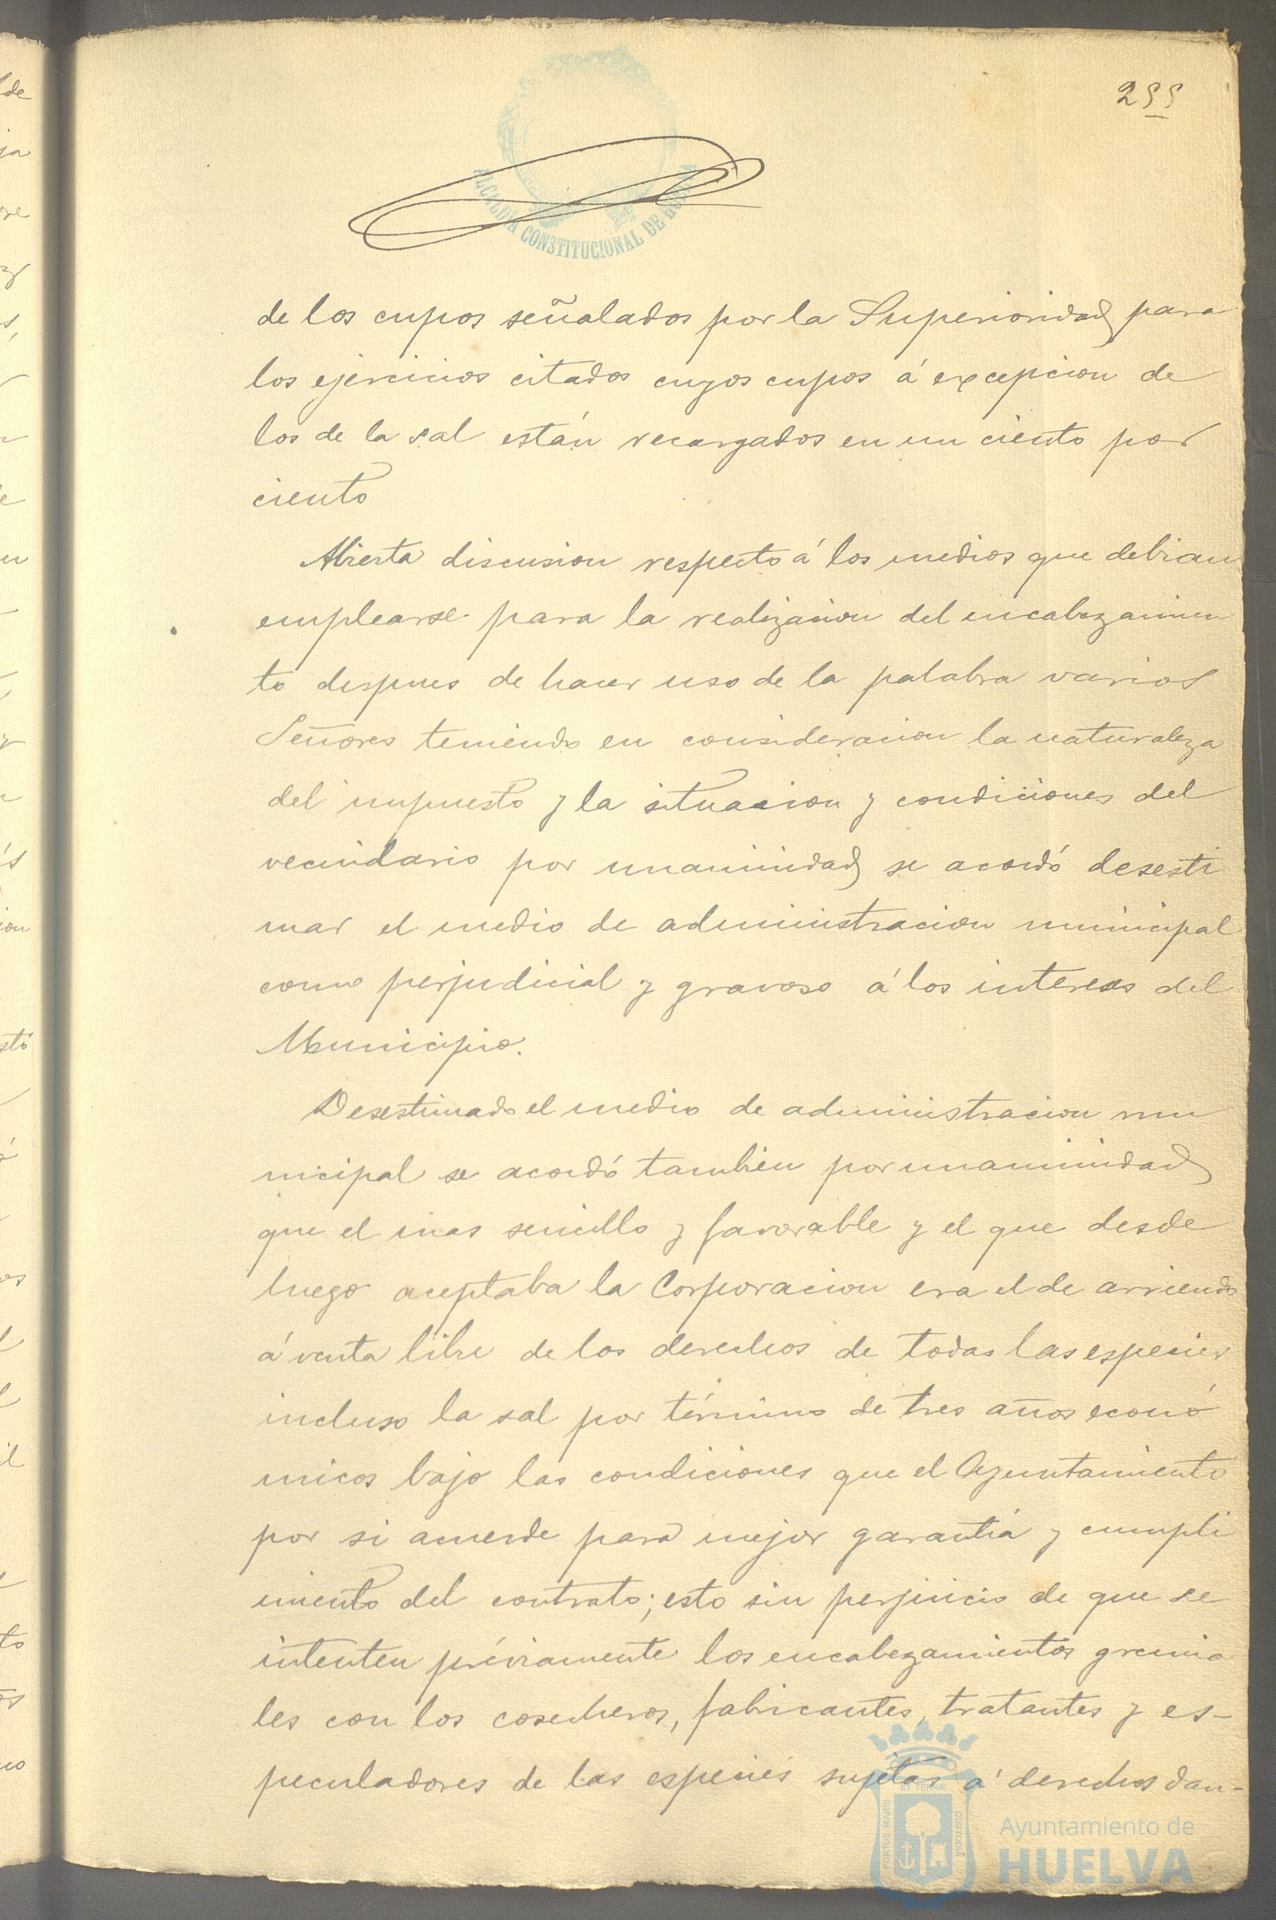 255
ALCALDÍA CONSTITUCIONAL DE HUELVA
de los cupos señalados por la Superioridad para
los ejercicios citados cuyos cupos á excepcion de
los de la sal están recargados en un ciento por
ciento
Abierta discusion respecto á los medios que debian
emplearse para la realizacion del encabezamien
to despues de hacer uso de la palabra varios
Señores teniendo en consideracion la naturaleza
del impuesto y la situacion y condiciones del
vecindario por unanimidad se acordó desesti
mar el medio de administracion municipal
como perjudicial y gravoso á los intereses del
Municipio.
Desestimado el medio de administracion mu
nicipal se acordó tambien por unanimidad
que el mas sencillo y favorable y el que desde
luego aceptaba la Corporacion era el de arriendo
á venta libre de los derechos de todas las especies
incluso la sal por término de tres años econó
micos bajo las condiciones que el Ayuntamiento
por si acuerde para mejor garantia y cumpli
miento del contrato; esto sin perjuicio de que se
intenten préviamente los encabezamientos gremia
les con los cosecheros, fabricantes, tratantes y es-
peculadores de las especies sujetas á derechos dan-
Ayuntamiento de
HUELVA